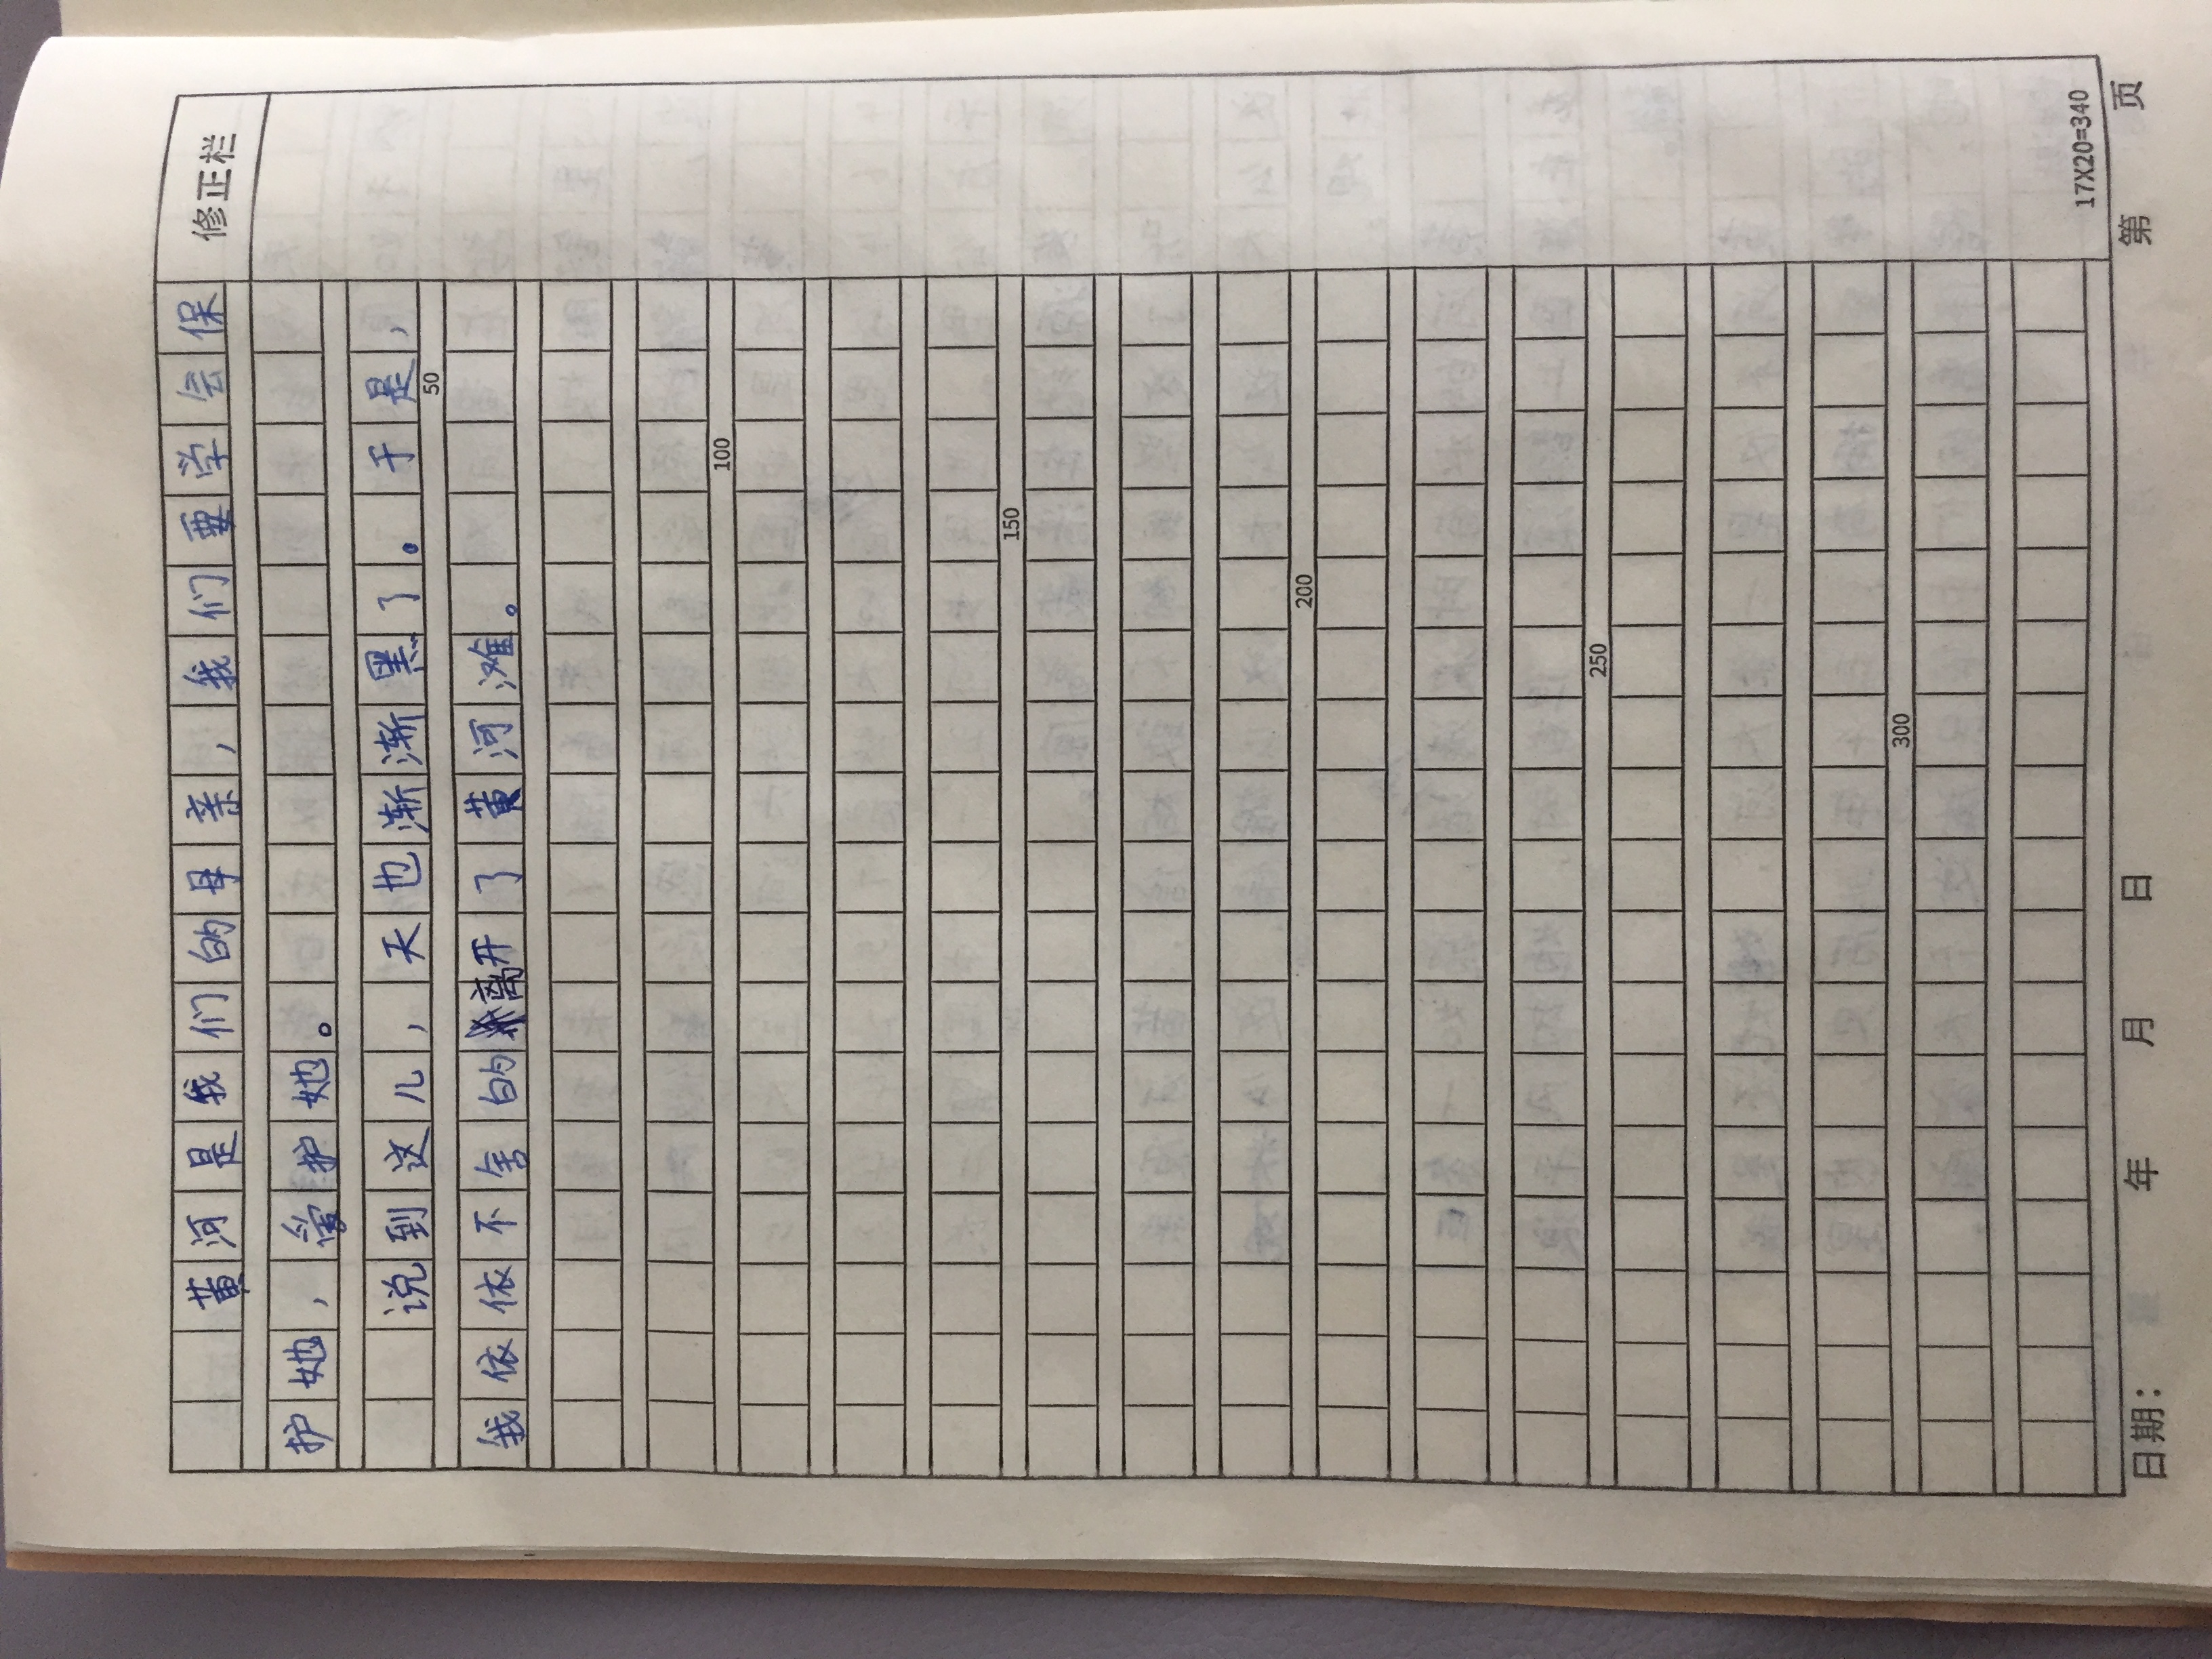 修正栏
黄河是我们的母亲，我们要学会保
护她，爱护她。
说到这儿，天也渐渐黑了。于是，
50
我依依不舍的离开了黄河滩。
100
150
200
250
300
17X20=340
日期： 年 月 日 第 页